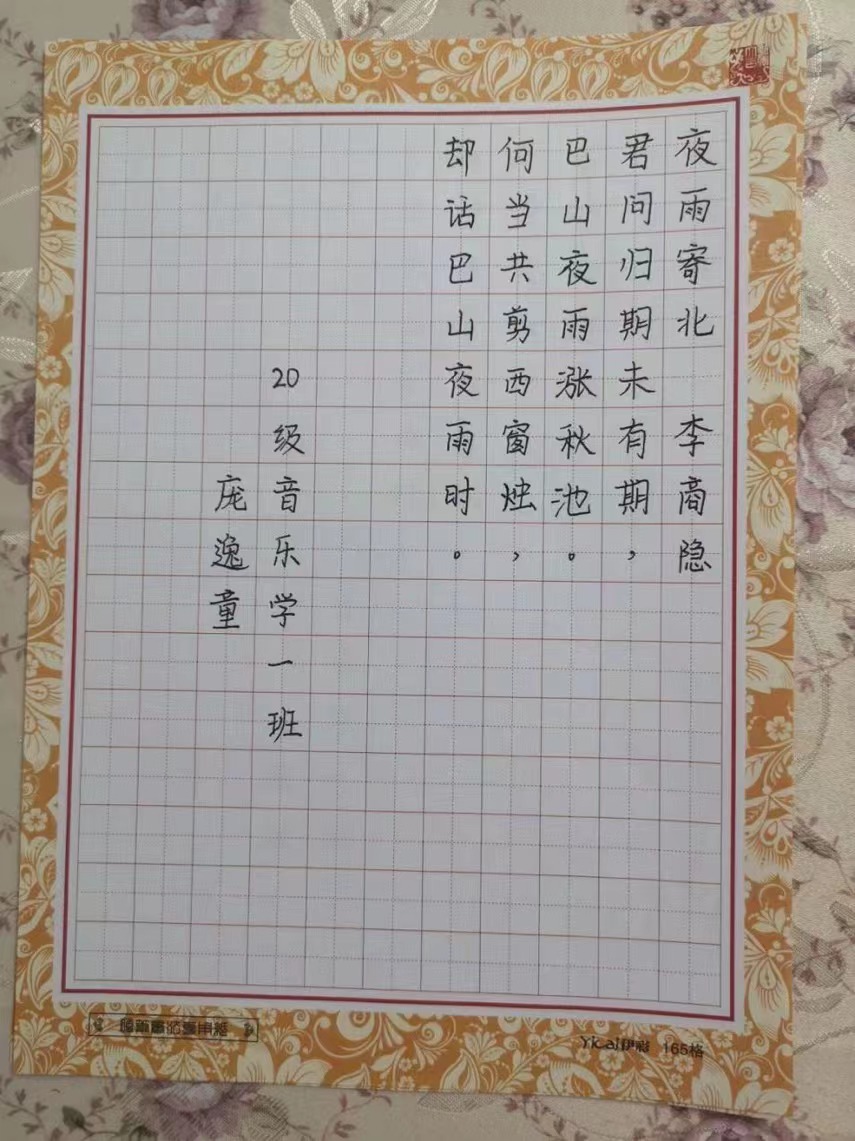 夜雨寄北 李商隐
君问归期未有期，
巴山夜雨涨秋池。
何当共剪西窗烛，
却话巴山夜雨时。
20级音乐学一班
庞逸童
Yicai伊彩 165格